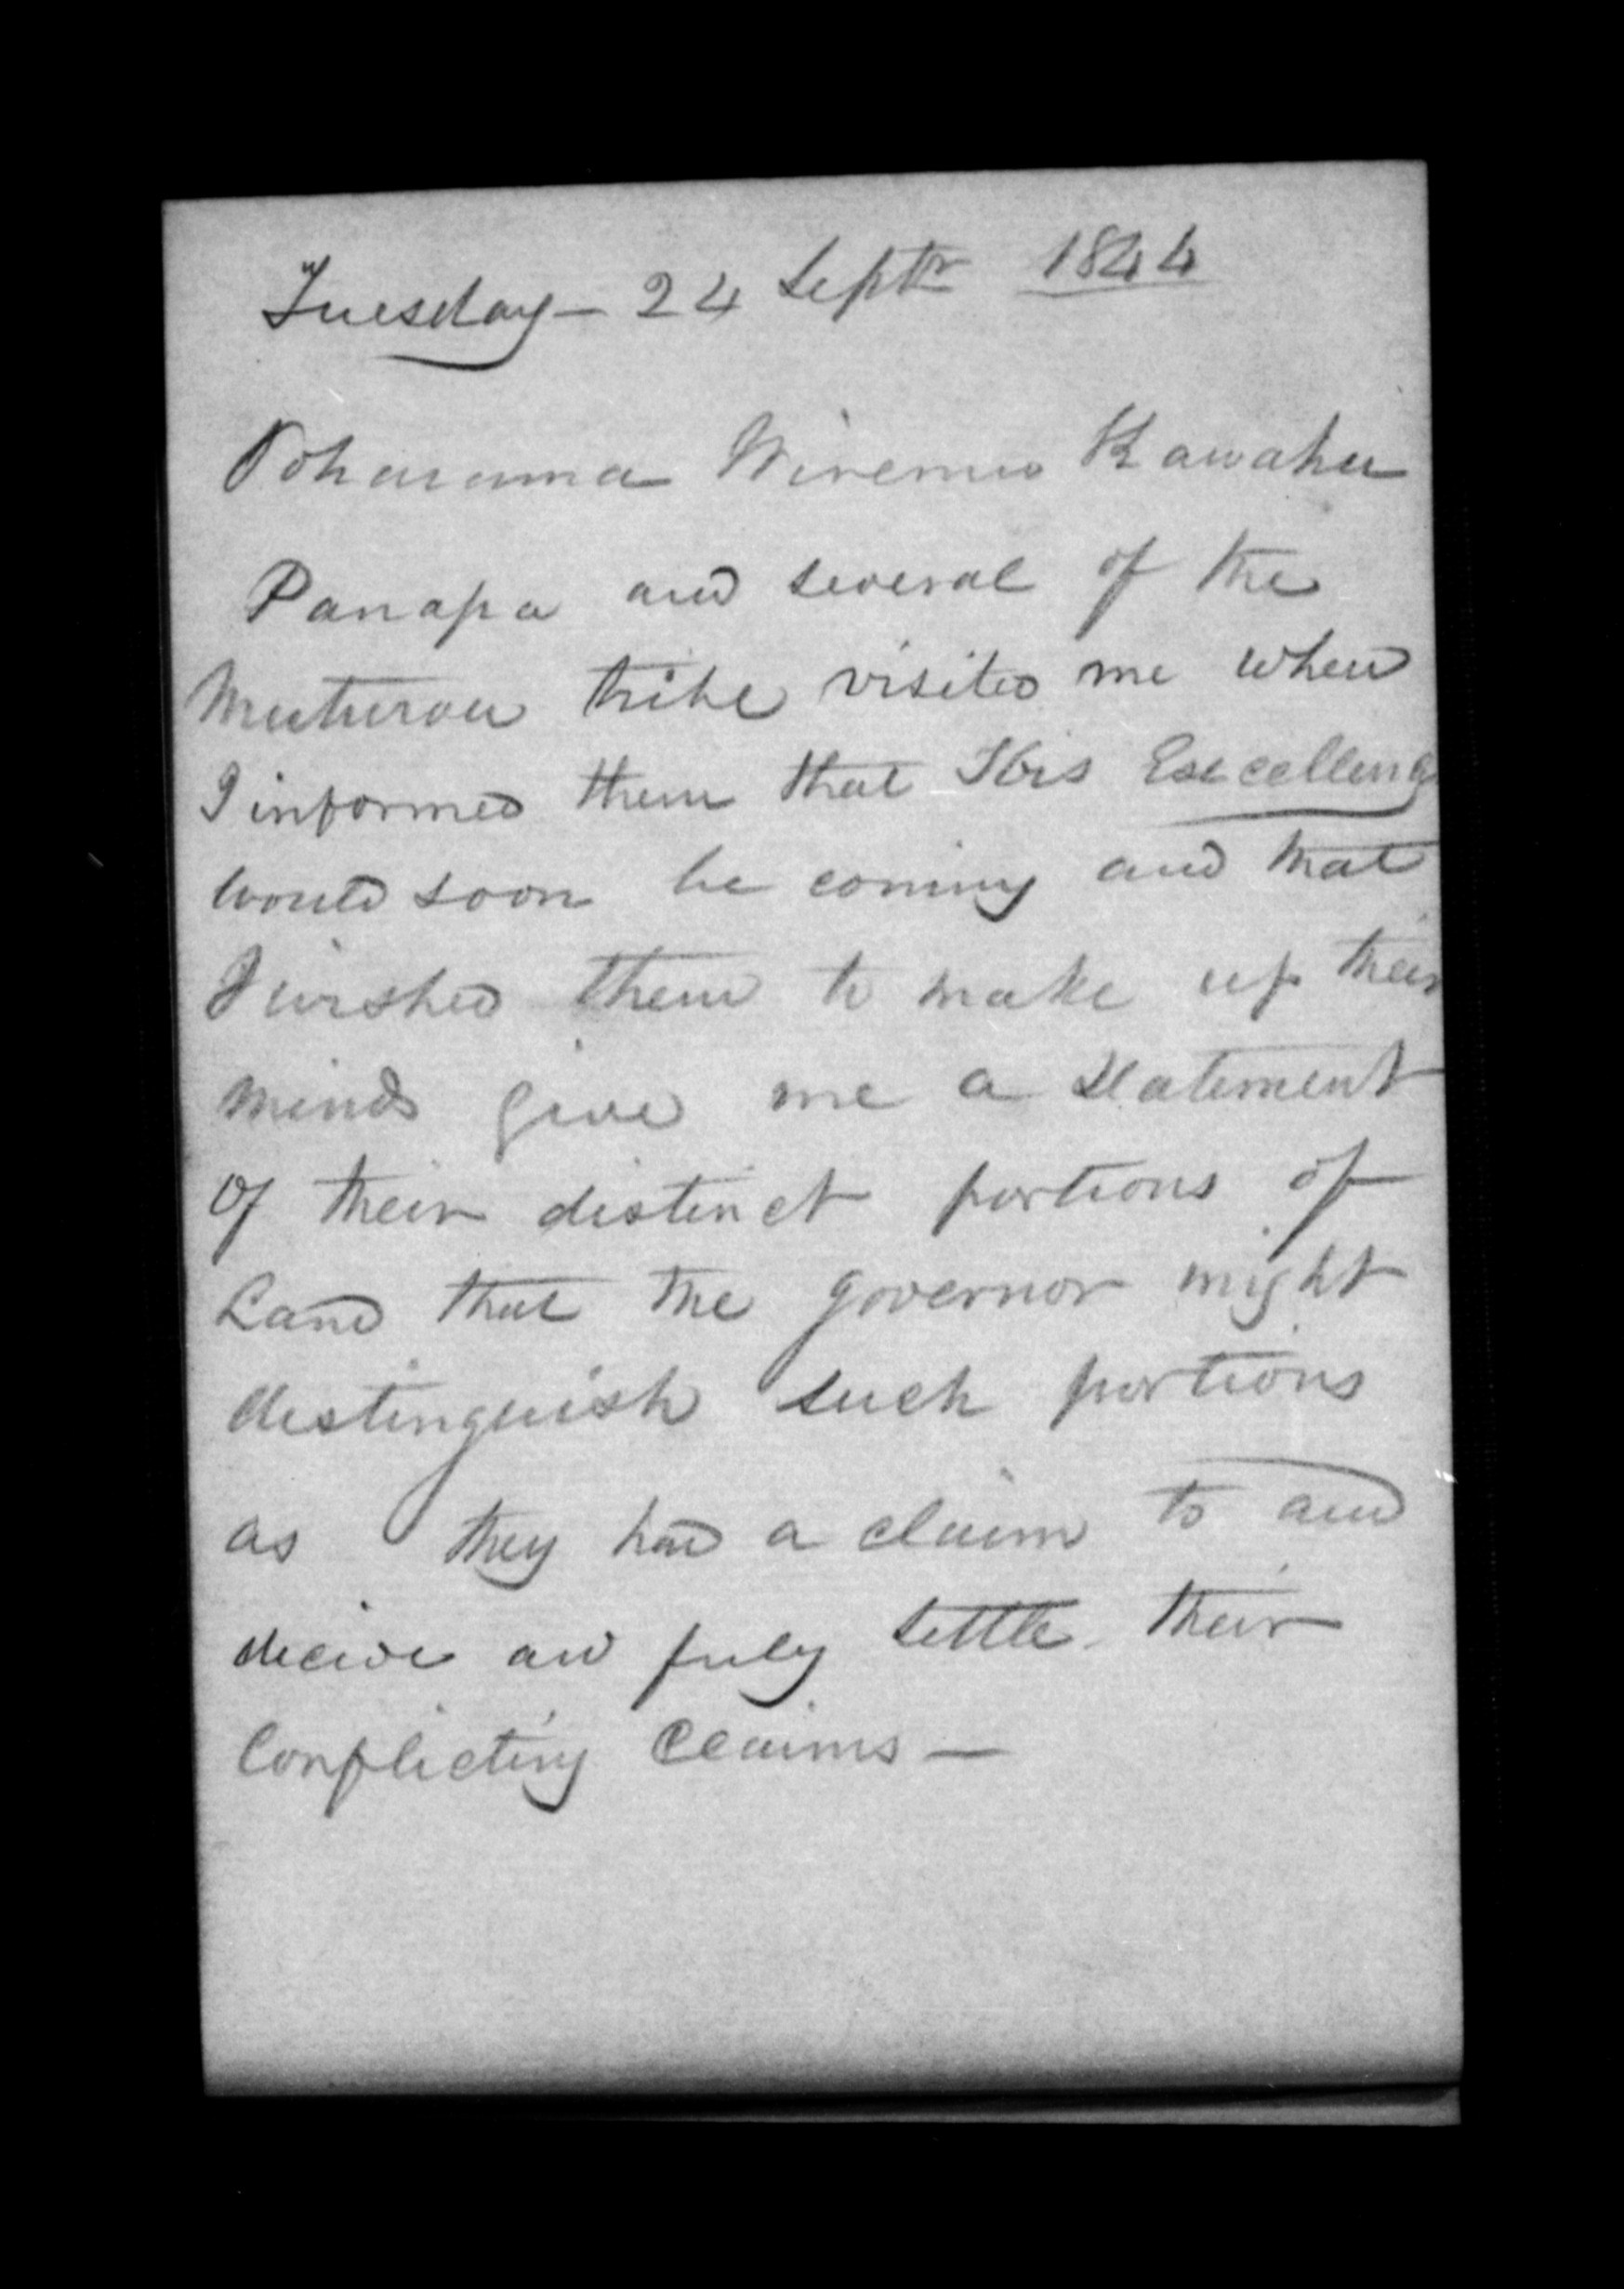 Tuesday - 24 Septr 1844
Poharama Wiremu Kawaho
Panapa and several of the
Muturoa tribe visited me when
I informed them that His Excellency
would soon be coming and that
I wished them to make up their
minds give me a statement
of their distinct portions of
Land that the governor might
distinguish such portions
as they had a claim to and
decide and fuly settle their
Conflicting Claims —